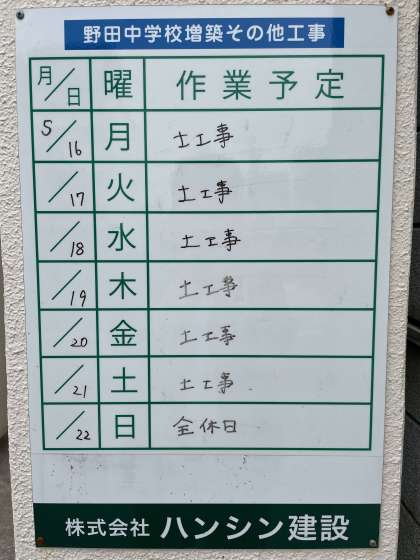 野田中学校増築その他工事
月/日 曜 作業予定
5/16 月 土工事
/17 火 土工事
/18 水 土工事
/19 木 土工事
/20 金 土工事
/21 土 土工事
/22 日 全休日
株式会社 ハンシン建設